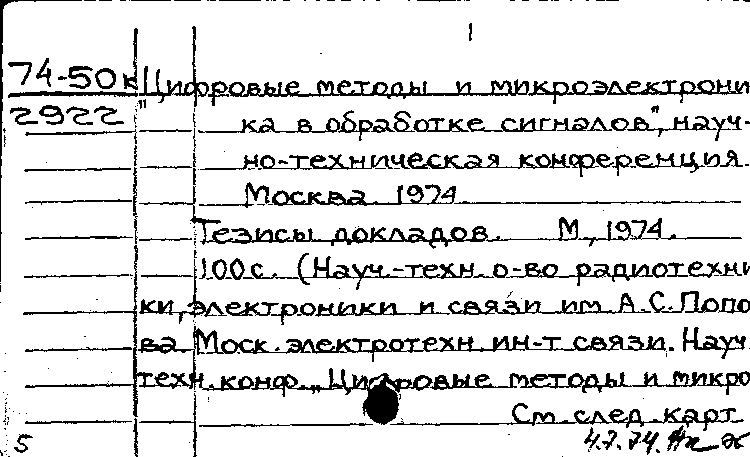 1
74-50к "Цифровые методы и микроэлектрони
2922
ка в обработке сигналов", науч-
но-техническая конференция.
Москва. 1974.
Тезисы докладов. М., 1974.
100с. (Науч.-техн. о-во радиотехни
ки, электроники и связи им. А.С. Попо
ва. Моск. электротехн. ин-т связи. Науч
техн. конф. „Цифровые методы и микро
См. след. карт
5 4.7.74.